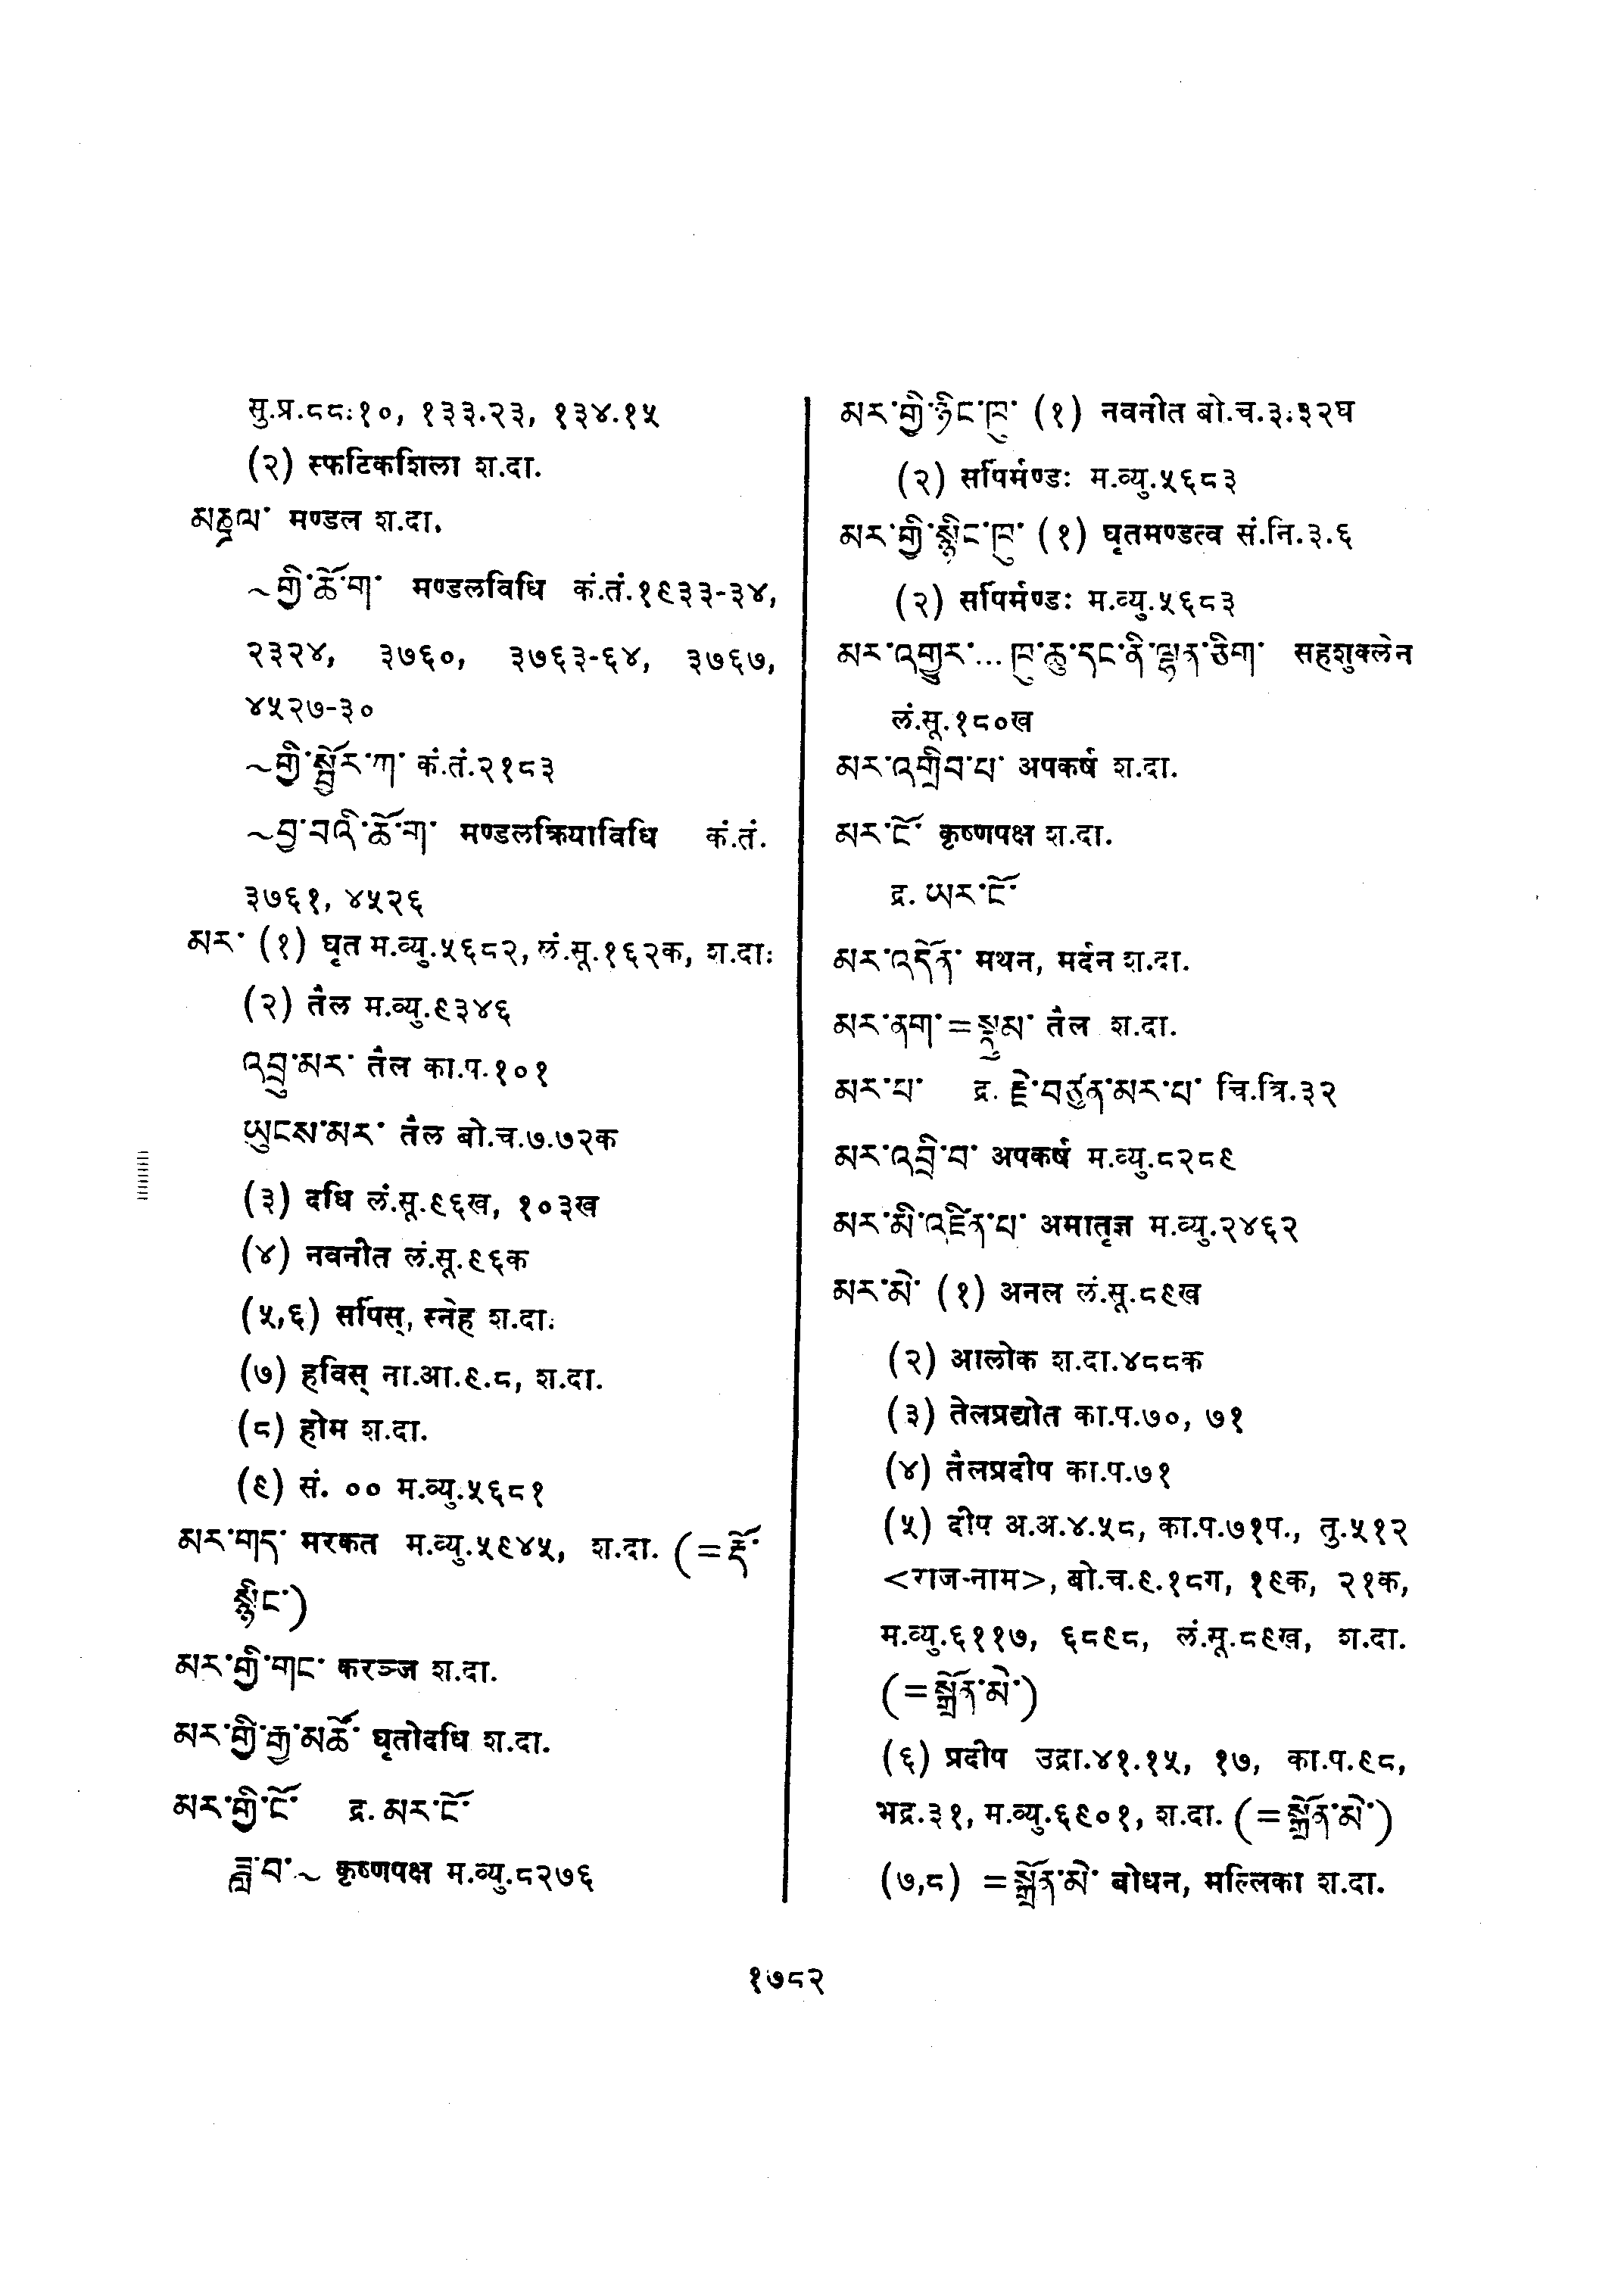 सु.प्र.८८.१०, १३३.२३, १३४.१५
(२) स्फटिकशिला श.दा.
མཎྜལ་ मण्डल श.दा.
~གྱི་ཆོ་ག་ मण्डलविधि कं.तं.१९३३-३४,
२३२४, ३७६०, ३७६३-६४, ३७६७,
४५२७-३०
~གྱི་སྦྱོར་ཀ་ कं.तं.२१८३
~བྱ་བའི་ཆོ་ག་ मण्डलक्रियाविधि कं.तं.
३७६१, ४५२६
མར་ (१) घृत म.व्यु.५६८२, लं.सू.१६२क, श.दा.
(२) तैल म.व्यु.९३४६
འབྲུ་མར་ तैल का.प.१०१
ཡུངས་མར་ तैल बो.च.७.७२क
(३) दधि लं.सू.९६ख, १०३ख
(४) नवनीत लं.सू.९६क
(५,६) सर्पिस्, स्नेह श.दा.
(७) हविस् ना.आ.९.८, श.दा.
(८) होम श.दा.
(९) सं. ०० म.व्यु.५६८१
མར་གད་ मरकत म.व्यु.५९४५, श.दा. (=རྡོ་
སྙིང་)
མར་གྱི་གང་ करञ्ज श.दा.
མར་གྱི་རྒྱ་མཚོ་ घृतोदधि श.दा.
མར་གྱི་ངོ་ द्र. མར་ངོ་
ཟླ་བ་~ कृष्णपक्ष म.व्यु.८२७६
མར་གྱི་ཉིང་ཁུ་ (१) नवनीत बो.च.३.३२घ
(२) सर्पिर्मण्डः म.व्यु.५६८३
མར་གྱི་སྙིང་ཁུ་ (१) घृतमण्डत्व सं.नि.३.६
(२) सर्पिर्मण्डः म.व्यु.५६८३
མར་འགྱུར་... ཁུ་ཆུ་དང་ནི་ལྷན་ཅིག་ सहशुक्लेन
लं.सू.१८०ख
མར་འགྲིབ་པ་ अपकर्ष श.दा.
མར་ངོ་ कृष्णपक्ष श.दा.
द्र. ཡར་ངོ་
མར་འདོན་ मथन, मर्दन श.दा.
མར་ནག་=སྣུམ་ तैल श.दा.
མར་པ་ द्र. རྗེ་བཙུན་མར་པ་ चि.त्रि.३२
མར་འབྲི་བ་ अपकर्ष म.व्यु.८२८९
མར་མི་འཛིན་པ་ अमातृज्ञ म.व्यु.२४६२
མར་མེ་ (१) अनल लं.सू.८९ख
(२) आलोक श.दा.४८८क
(३) तेलप्रद्योत का.प.७०, ७१
(४) तैलप्रदीप का.प.७१
(५) दीप अ.अ.४.५८, का.प.७१प., तु.५१२
<राज-नाम>, बो.च.९.१८ग, १९क, २१क,
म.व्यु.६११७, ६८९८, लं.सू.८९ख, श.दा.
(=སྒྲོན་མེ་)
(६) प्रदीप उद्रा.४१.१५, १७, का.प.९८,
भद्र.३१, म.व्यु.६९०१, श.दा. (=སྒྲོན་མེ་)
(७,८) =སྒྲོན་མེ་ बोधन, मल्लिका श.दा.
१७८२